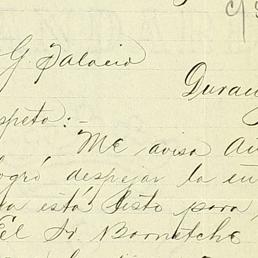 G Palacio
Duran
speto:-
Me avisa Au
ogró despejar la in
la está listo para
El Sr. Barnetche